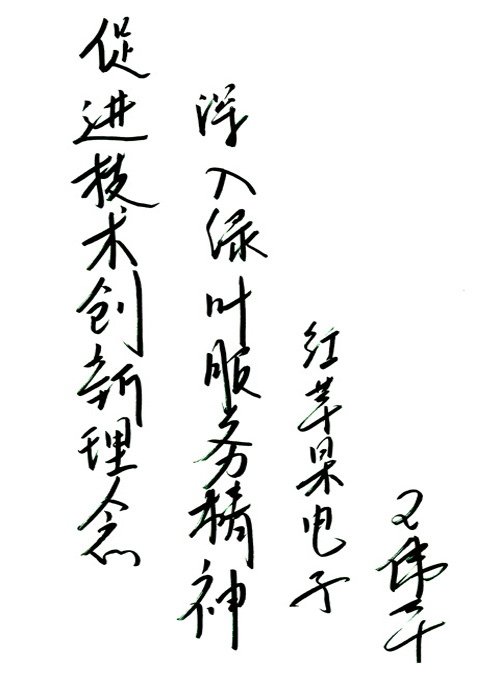 促进技术创新理念
深入绿叶服务精神
红苹果电子